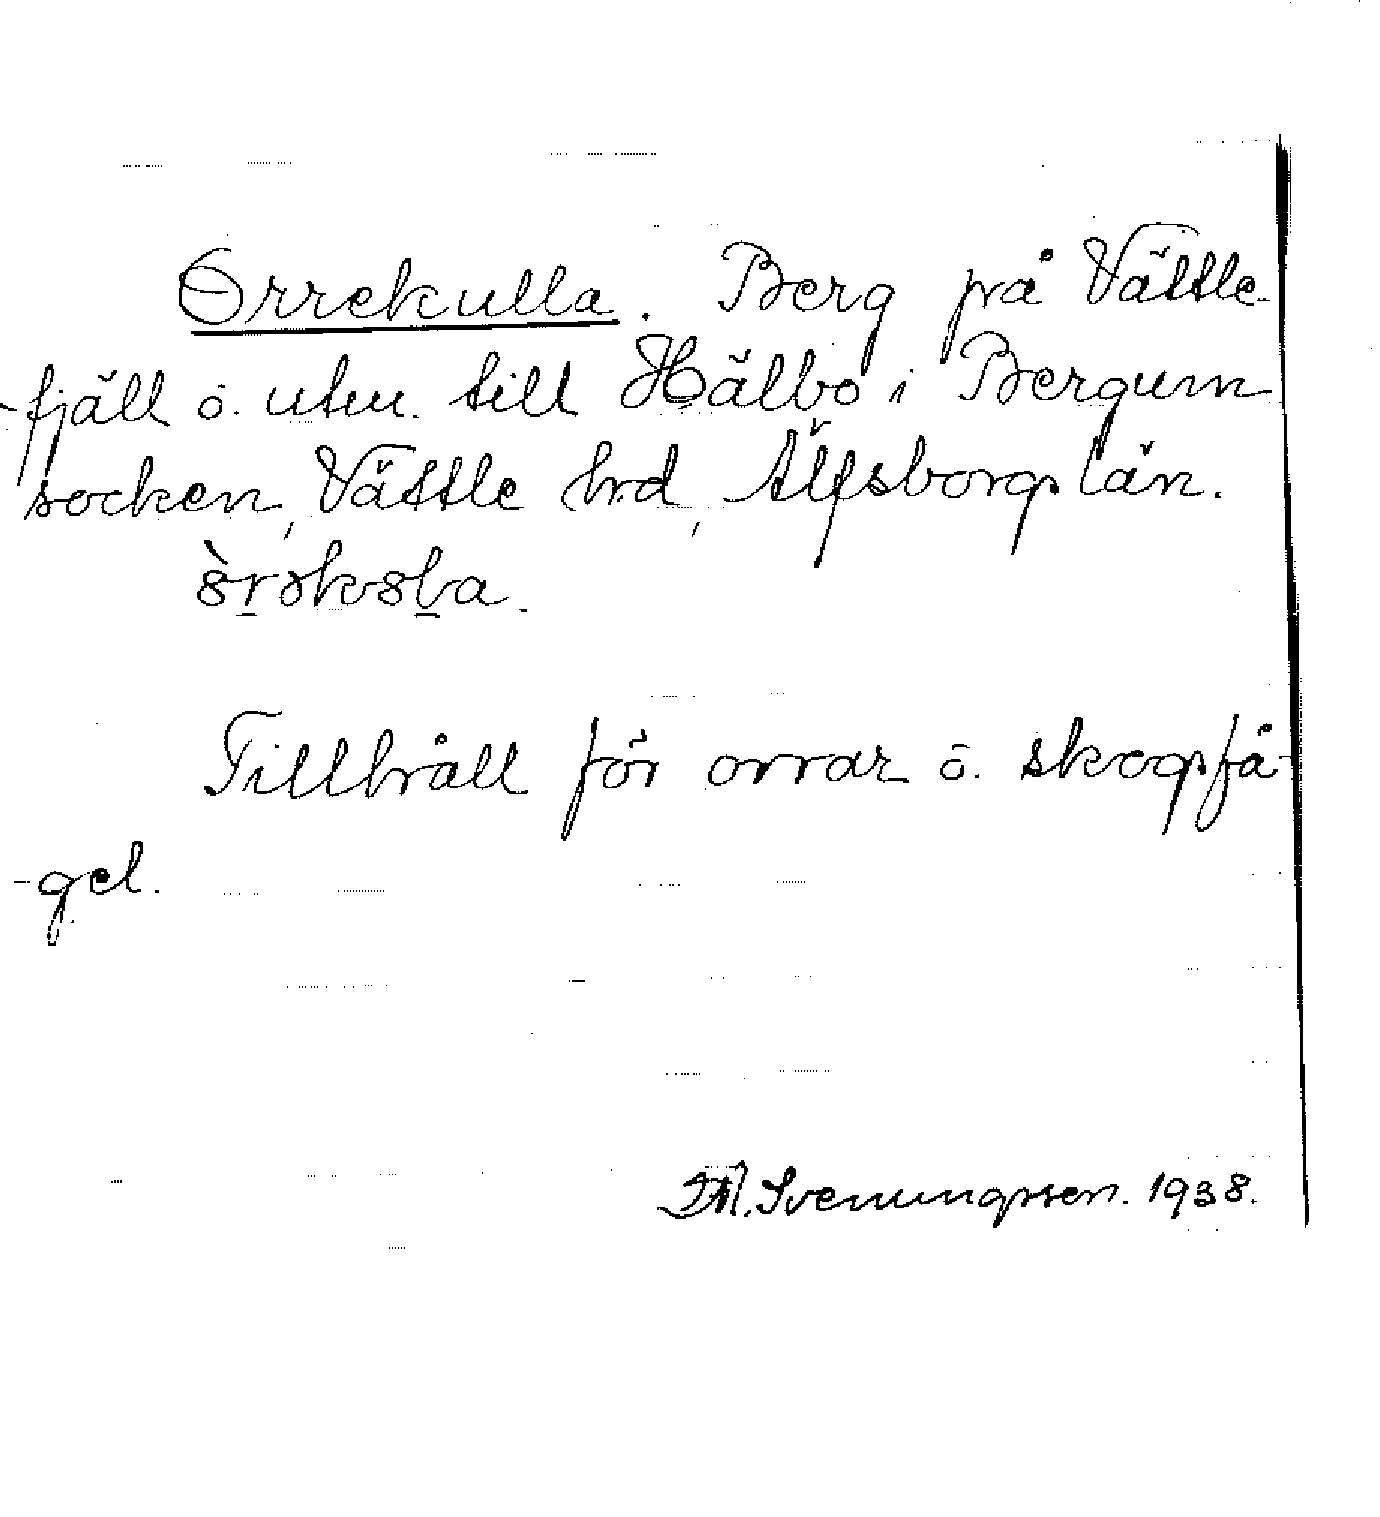 Orrekulla. Berg på Vättle-
-fjäll ö. utm. till Hälbo i Bergum
socken, Vättle hrd, Älfsborgs län.
Tillhåll för orrar ö. skogsfå-
-gel.
Svenungsson. 1938.